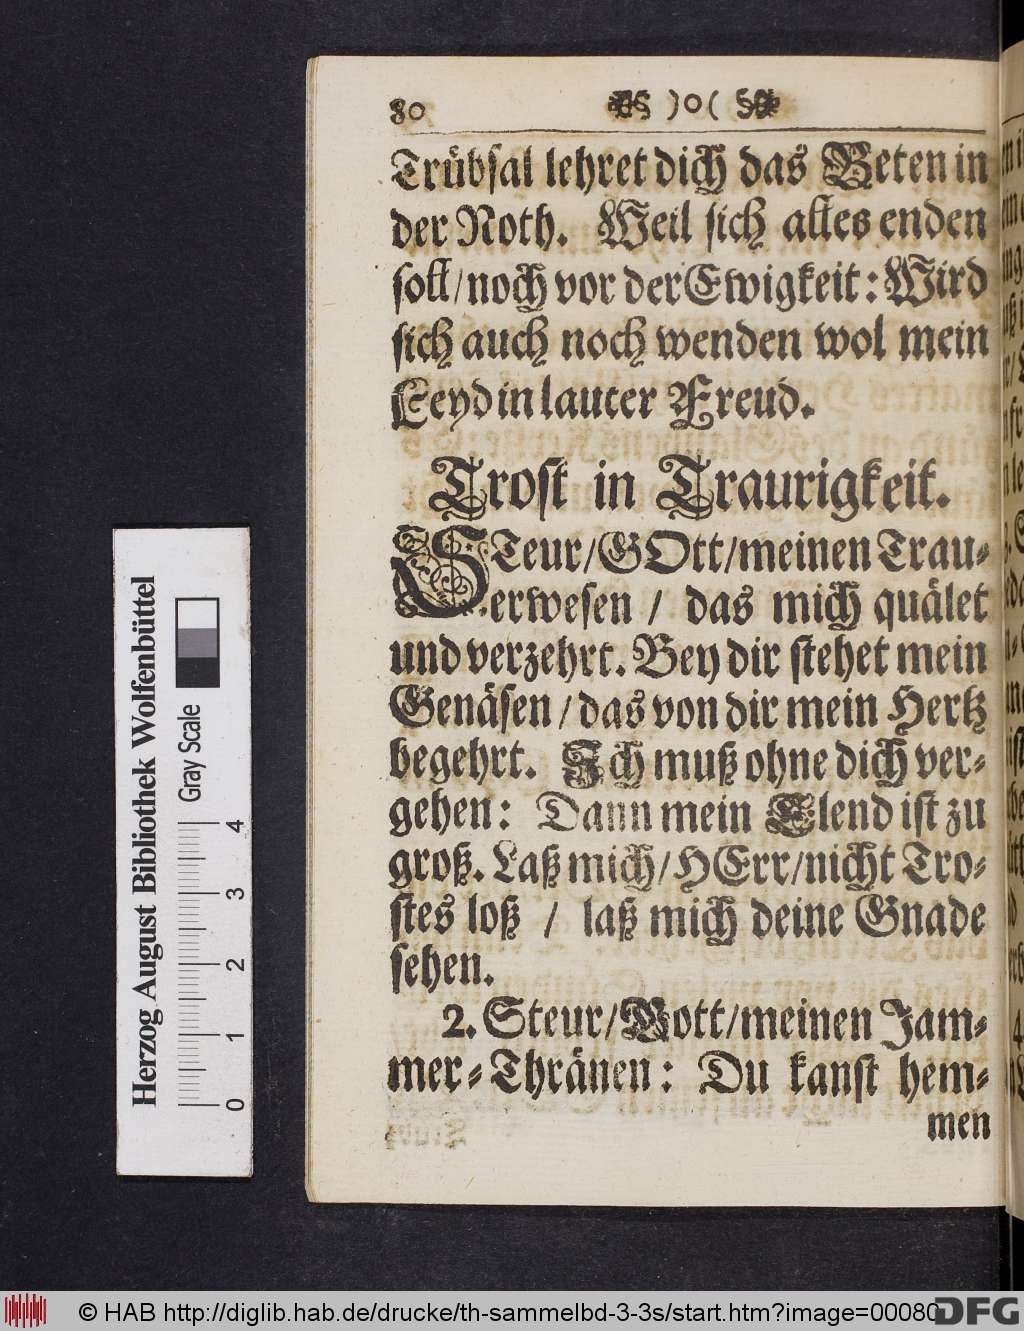 80 )o(
Trübsal lehret dich das Beten in
der Noth. Weil sich alles enden
soll/ noch vor der Ewigkeit: Wird
sich auch noch wenden wol mein
Leyd in lauter Freud.
Trost in Traurigkeit.
STeur/ GOtt/ meinen Trau-
erwesen / das mich quälet
und verzehrt. Bey dir stehet mein
Genäsen / das von dir mein Hertz
begehrt. Ich muß ohne dich ver-
gehen: Dann mein Elend ist zu
groß. Laß mich/ HErr/ nicht Tro-
stes loß / laß mich deine Gnade
sehen.
2. Steur/ Gott/ meinen Jam-
mer-Thränen: Du kanst hem-
men
Herzog August Bibliothek Wolfenbüttel
Gray Scale
0 1 2 3 4
© HAB http://diglib.hab.de/drucke/th-sammelbd-3-3s/start.htm?image=00080
DFG